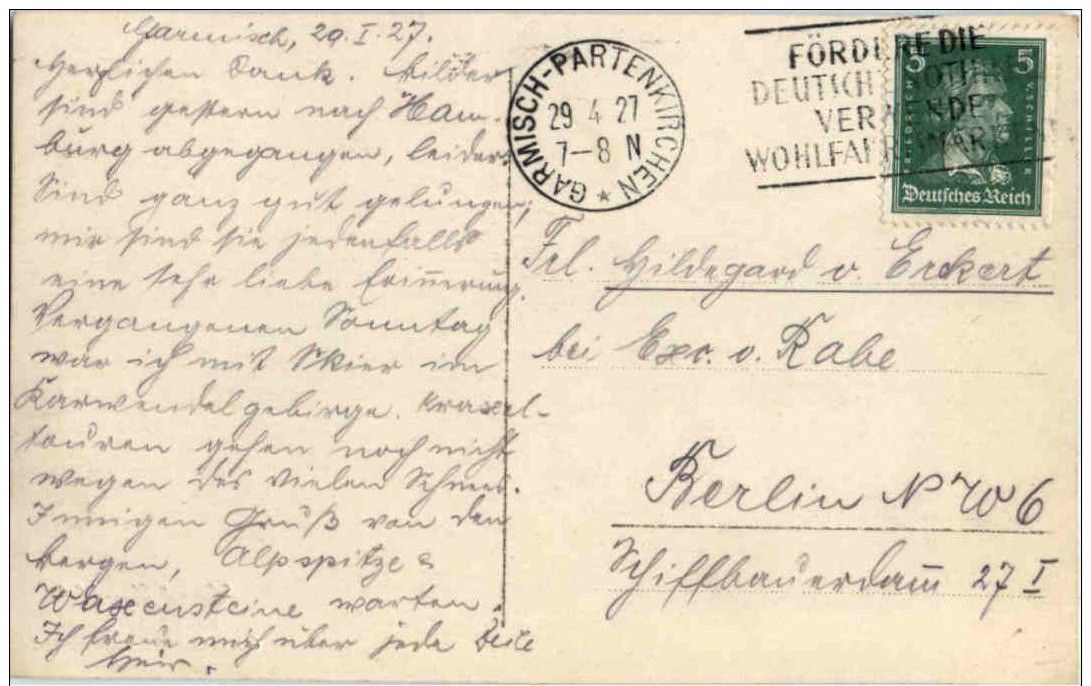 Garmisch, 29. I. 27.
Herzlichen Dank. Bilder
sind gestern nach Ham-
burg abgegangen, leider.
Sind ganz gut gelungen,
mir sind sie jedenfalls
eine sehr liebe Erinnerung.
Vergangenen Sonntag
war ich mit Skier im
Karwendelgebirge. Kraxel-
touren gehen noch nicht
wegen des vielen Schnees.
Innigen Gruß von den
Bergen, Alpspitze &
Waxensteine warten.
Ich freue mich über jede Zeile
GARMISCH-PARTENKIRCHEN
29 4 27
7-8 N
FÖRDERE DIE
DEUTSCHE NOTHILFE
VERWENDE
WOHLFAHRTSMARKEN
5 5
Deutsches Reich
Frl. Hildegard v. Erckert
bei Exc. v. Rabe
Berlin N W 6
Schiffbauerdamm 27 I